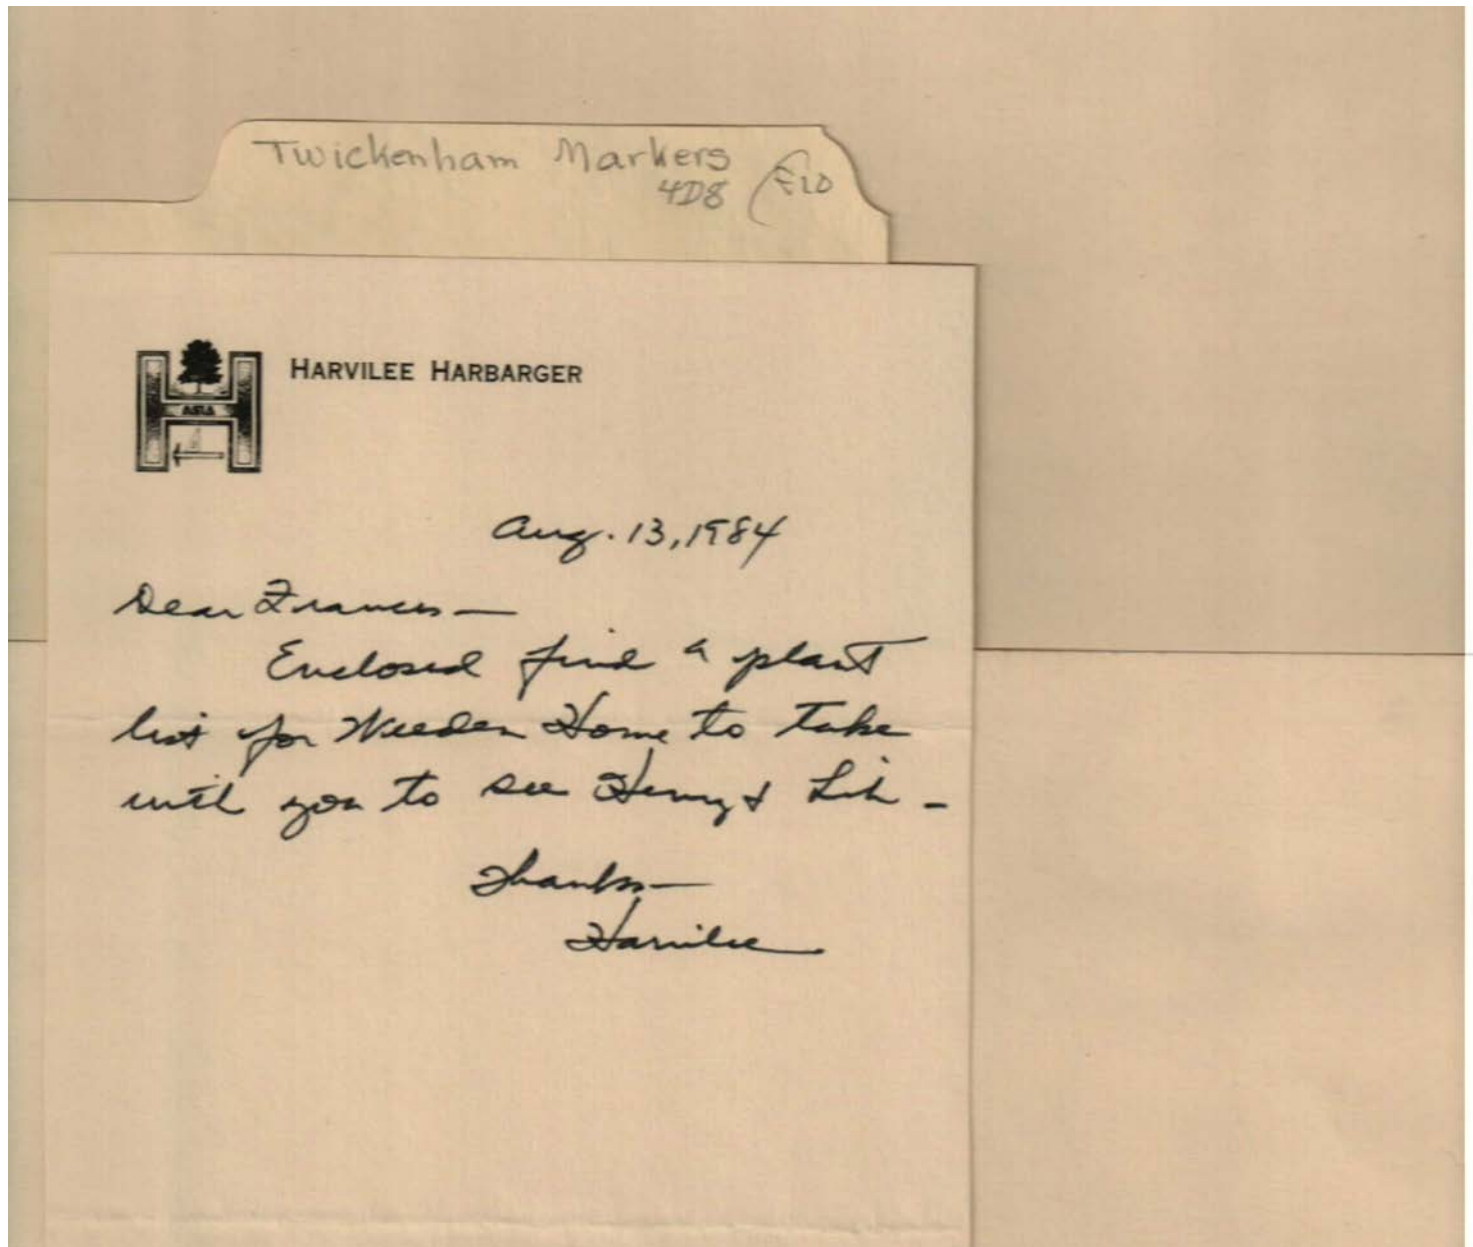 Twickenham Markers
4D8 (F10
HARVILEE HARBARGER
ASLA
Aug. 13, 1984
Dear Frances —
Enclosed find a plant
list for Weeden Home to take
with you to see Henry &
Thanks —
Harvilee